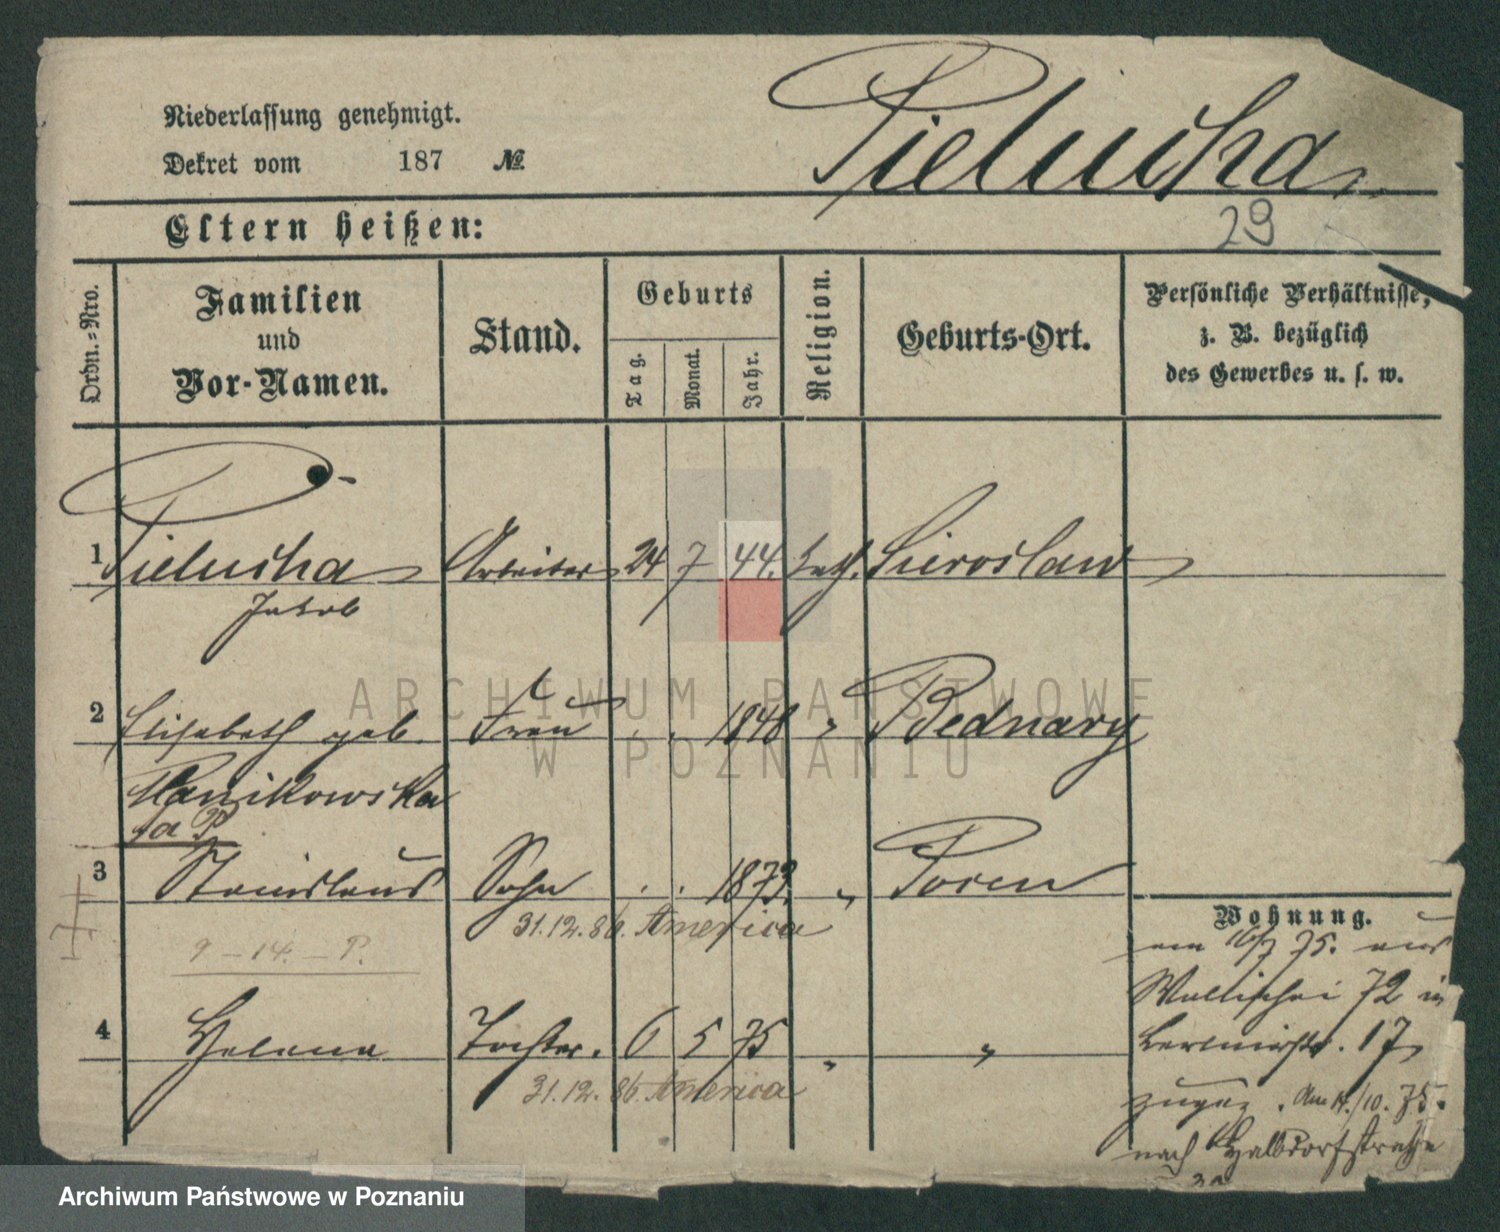 Niederlassung genehmigt.
Dekret vom 187 №
Pielucha
29
Eltern heißen:
Ordn.-Nro.
Familien
und
Vor-Namen.
Stand.
Geburts
Tag.
Monat.
Jahr.
Religion.
Geburts-Ort.
Persönliche Verhältnisse,
z. B. bezüglich
des Gewerbes u. s. w.
1 Pielucha Arbeiter 24 7 44. kath. Sieroslaw
Jakob
2 Elisabeth geb. Frau . . 1848 " Bednary
3 Stanislaus Sohn . . 1873. " Posen
31.12.86. America
9 – 14. – P.
4 Helena Tochter. 6 5 75 " "
31.12.86 America
Wohnung.
am 16/7 75. aus
Wallischei 72 in
17
zugez. Am 14./10. 75.
nach Halbdorfstrasse
ARCHIWUM PAŃSTWOWE
W POZNANIU
Archiwum Państwowe w Poznaniu